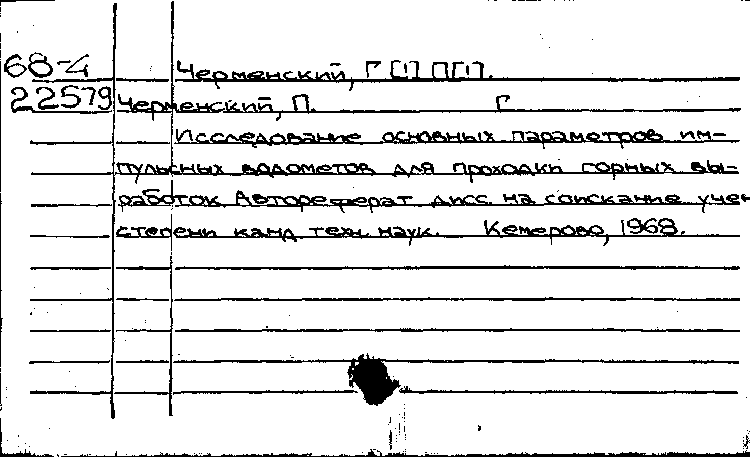 68-4 Черменский, Г [!] П[!].
22579 Черменский, П. Г
Исследование основных параметров им-
пульсных водометов для проходки горных вы-
работок. Автореферат дисс. на соискание учен
степени канд. техн. наук. Кемерово, 1968.